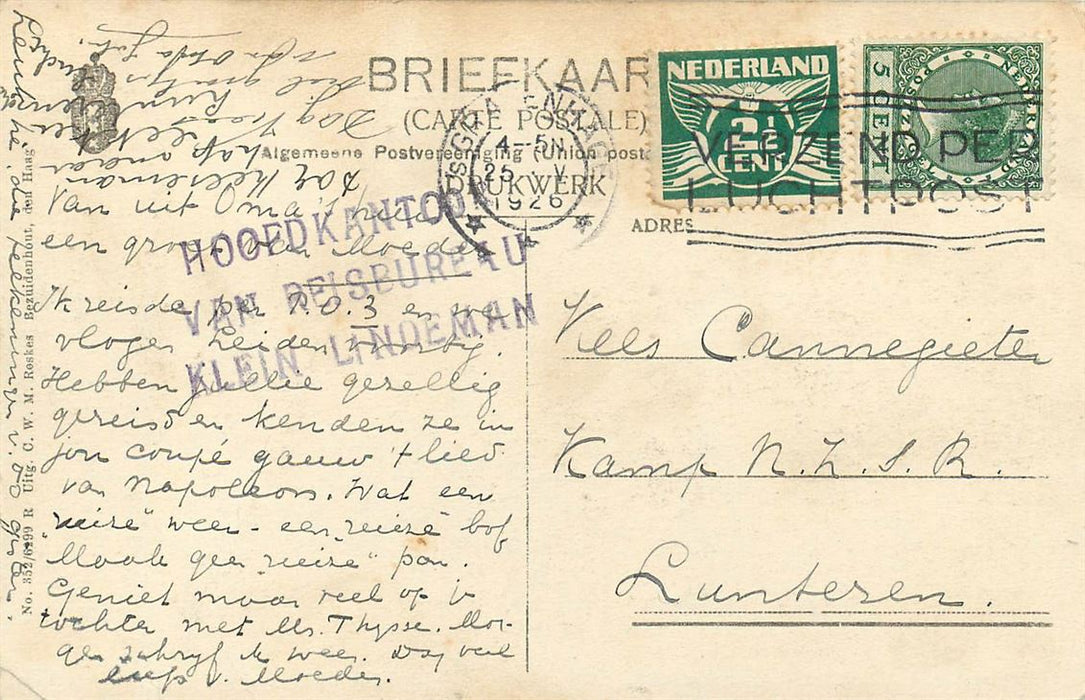 BRIEFKAAR
(CARTE POSTALE)
Algemeene Postvereeniging (Union post
DRUKWERK
ADRES
'SGRAVENHAGE
4-5N
25 V
1926
NEDERLAND
2½
CENT
NEDERLAND
POSTZ
5 CENT
VERZEND PER
LUCHTPOST
HOOFDKANTOOR
VAN REISBUREAU
KLEIN LINDEMAN
Van uit Oma's
een groet van Moeder
Ik reisde per P.O.3 en we
vlogen Leiden voorbij.
Hebben jullie gezellig
gereisd en kenden ze in
jou coupé gauw 't lied
van Napoleon. Wat een
"reize" weer - een "reize" bof
Maak geen "reize" pan.
Geniet maar veel op je
tochten met Mr. Thysse. Mor-
gen schryf ik weer. Dag veel
liefs v. Moeder.
Dag Kees
No. 352/6299 R Uitg. C. W. M. Roskes Bezuidenhout, den Haag
Kees Cannegieter
Kamp N.Z.S.R.
Lunteren.